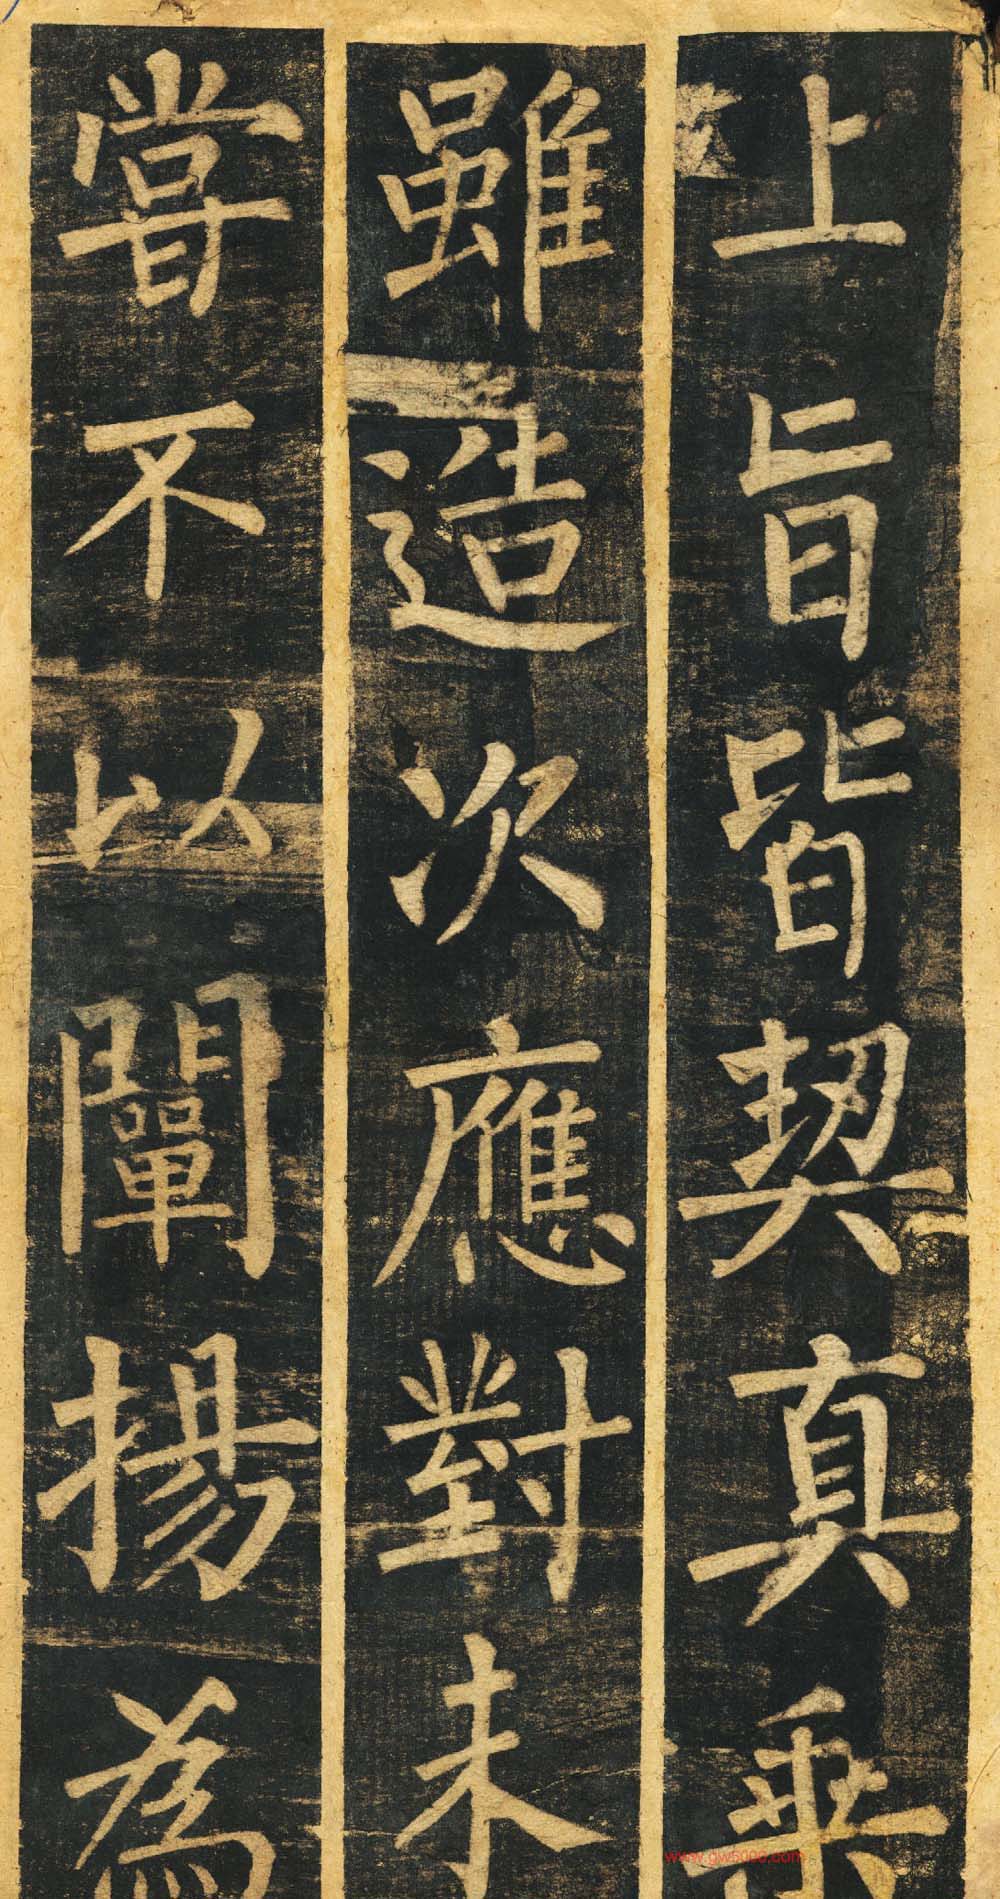 上旨皆契真乗
雖造次應對未
甞不以闡揚為
www.gw5000.com